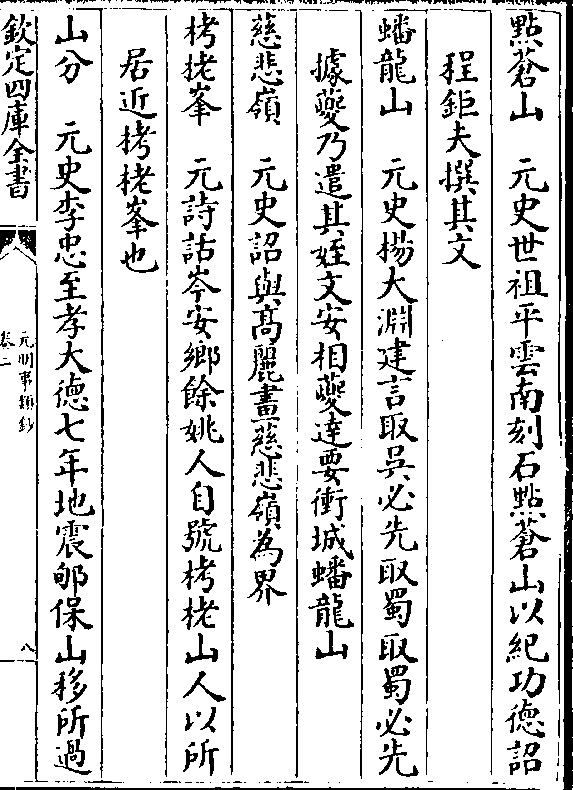 點蒼山　元史世祖平雲南刻石點蒼山以紀功德詔
程鉅夫撰其文
蟠龍山　元史楊大淵建言取吳必先取蜀取蜀必先
據夔乃遣其姪文安相夔達要衝城蟠龍山
慈悲嶺　元史詔與髙麗畫慈悲嶺為界
栲栳峯　元詩話岑安鄉餘姚人自號栲栳山人以所
居近栲栳峯也
山分　元史李忠至孝大德七年地震郇保山移所過
欽定四庫全書
元明事類鈔
卷二
八